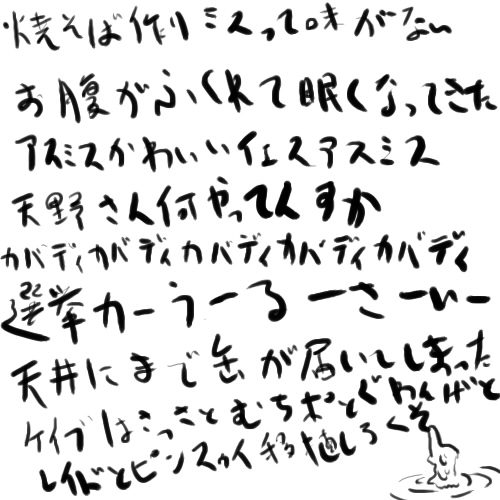 焼そば作りミスって味がない
お腹がふくれて眠くなってきた
アスミスかわいいイェスアスミス
天野さん何やってんすか
カバディカバディカバディカバディカバディ
選挙カーうーるーさーいー
天井にまで缶が届いてしまった
ケイブはさっさとむちポとぐわんげと
レイドとピンスゥイ移植しろくそ